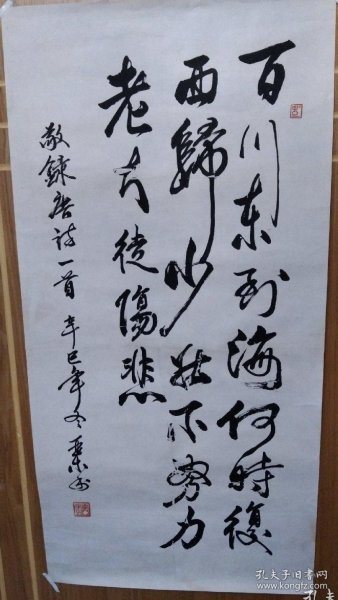 百川东到海何时復
西归少壮不努力
老大徒傷悲
敬録唐诗一首 辛巳年冬
孔夫子旧书网
www.kongfz.com